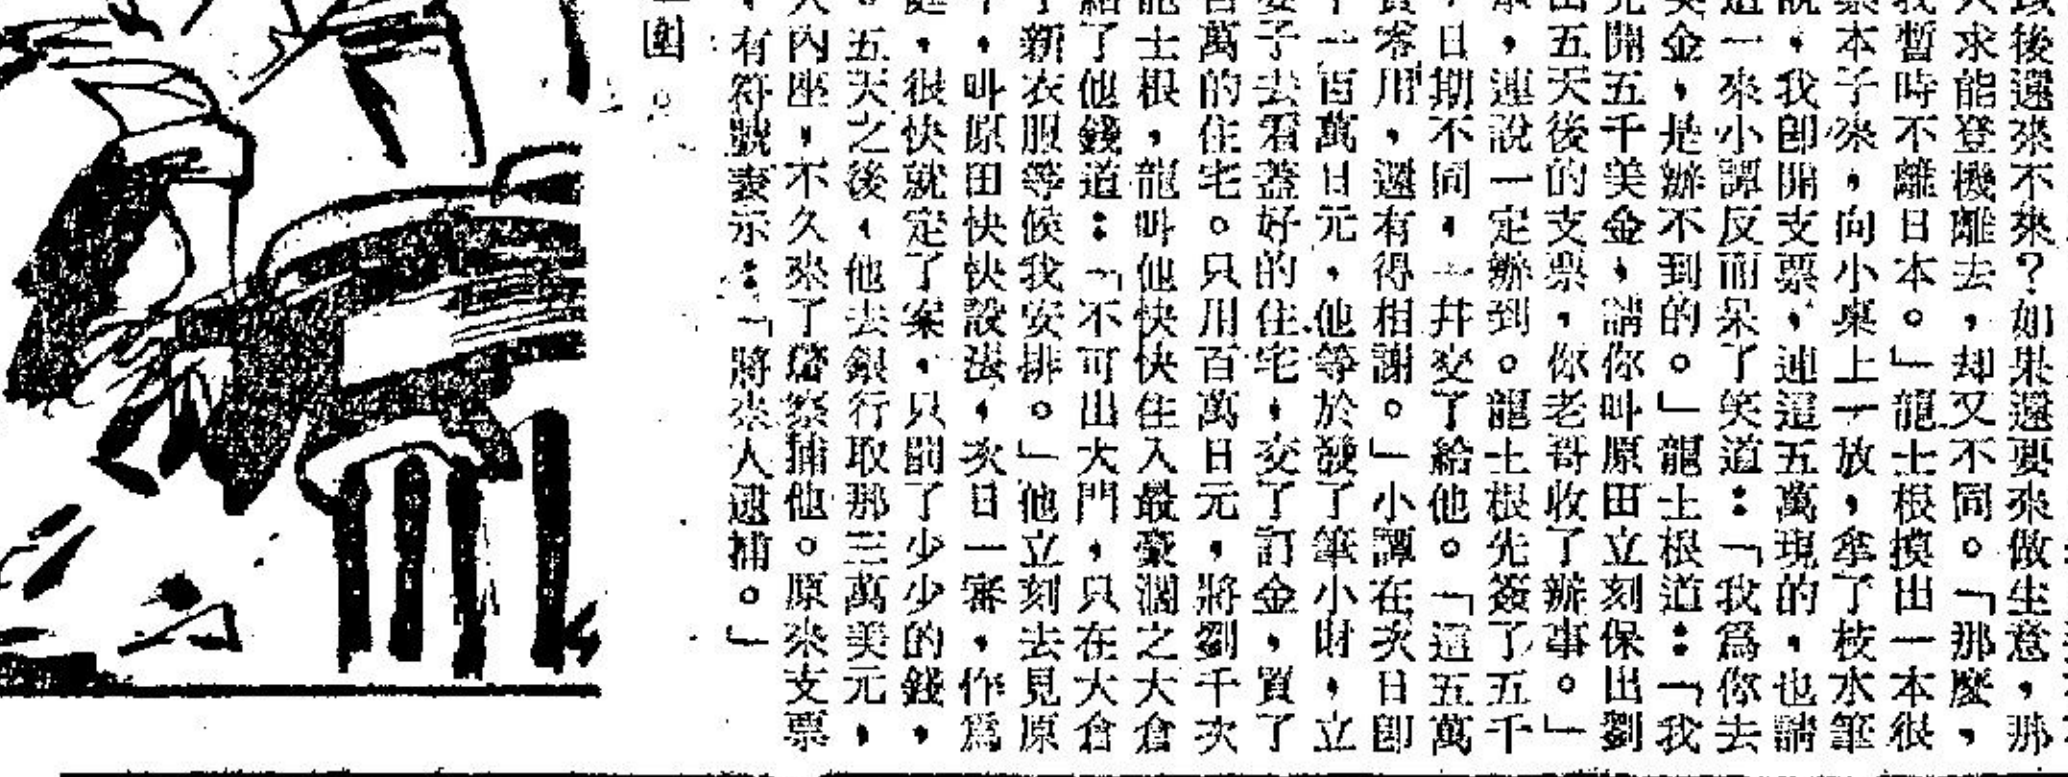 後還來不來？如果還要來做生意，那
求能登機離去，却又不同。「那麼，
我暫時不離日本。」龍士根摸出一本很
本子來，向小桌上一放，拿了枝水筆
，我卽開支票，連這五萬現的，也請
一來小譚反而呆了笑道：「我爲你去
美金，是辦不到的。」龍士根道：「我
開五千美金，請你叫原田立刻保出劉
五天後的支票，你老哥收了辦事。」
，連說一定辦到。龍士根先簽了五千
日期不同，一幷交了給他。「這五萬
零用，還有得相謝。」小譚在次日卽
一百萬日元，他等於發了筆小財，立
子去看蓋好的住宅，交了訂金，買了
百萬的住宅。只用百萬日元，將劉千次
龍士根，龍叫他快快住入最豪濶之大倉
給了他錢道：「不可出大門，只在大倉
新衣服等候我安排。」他立刻去見原
，叫原田快快設法，次日一審，作爲
，很快就定了案，只罰了少少的錢，
。五天之後，他去銀行取那三萬美元，
內座，不久來了警察捕他。原來支票
，有符號表示：「將來人逮捕。」
圖。